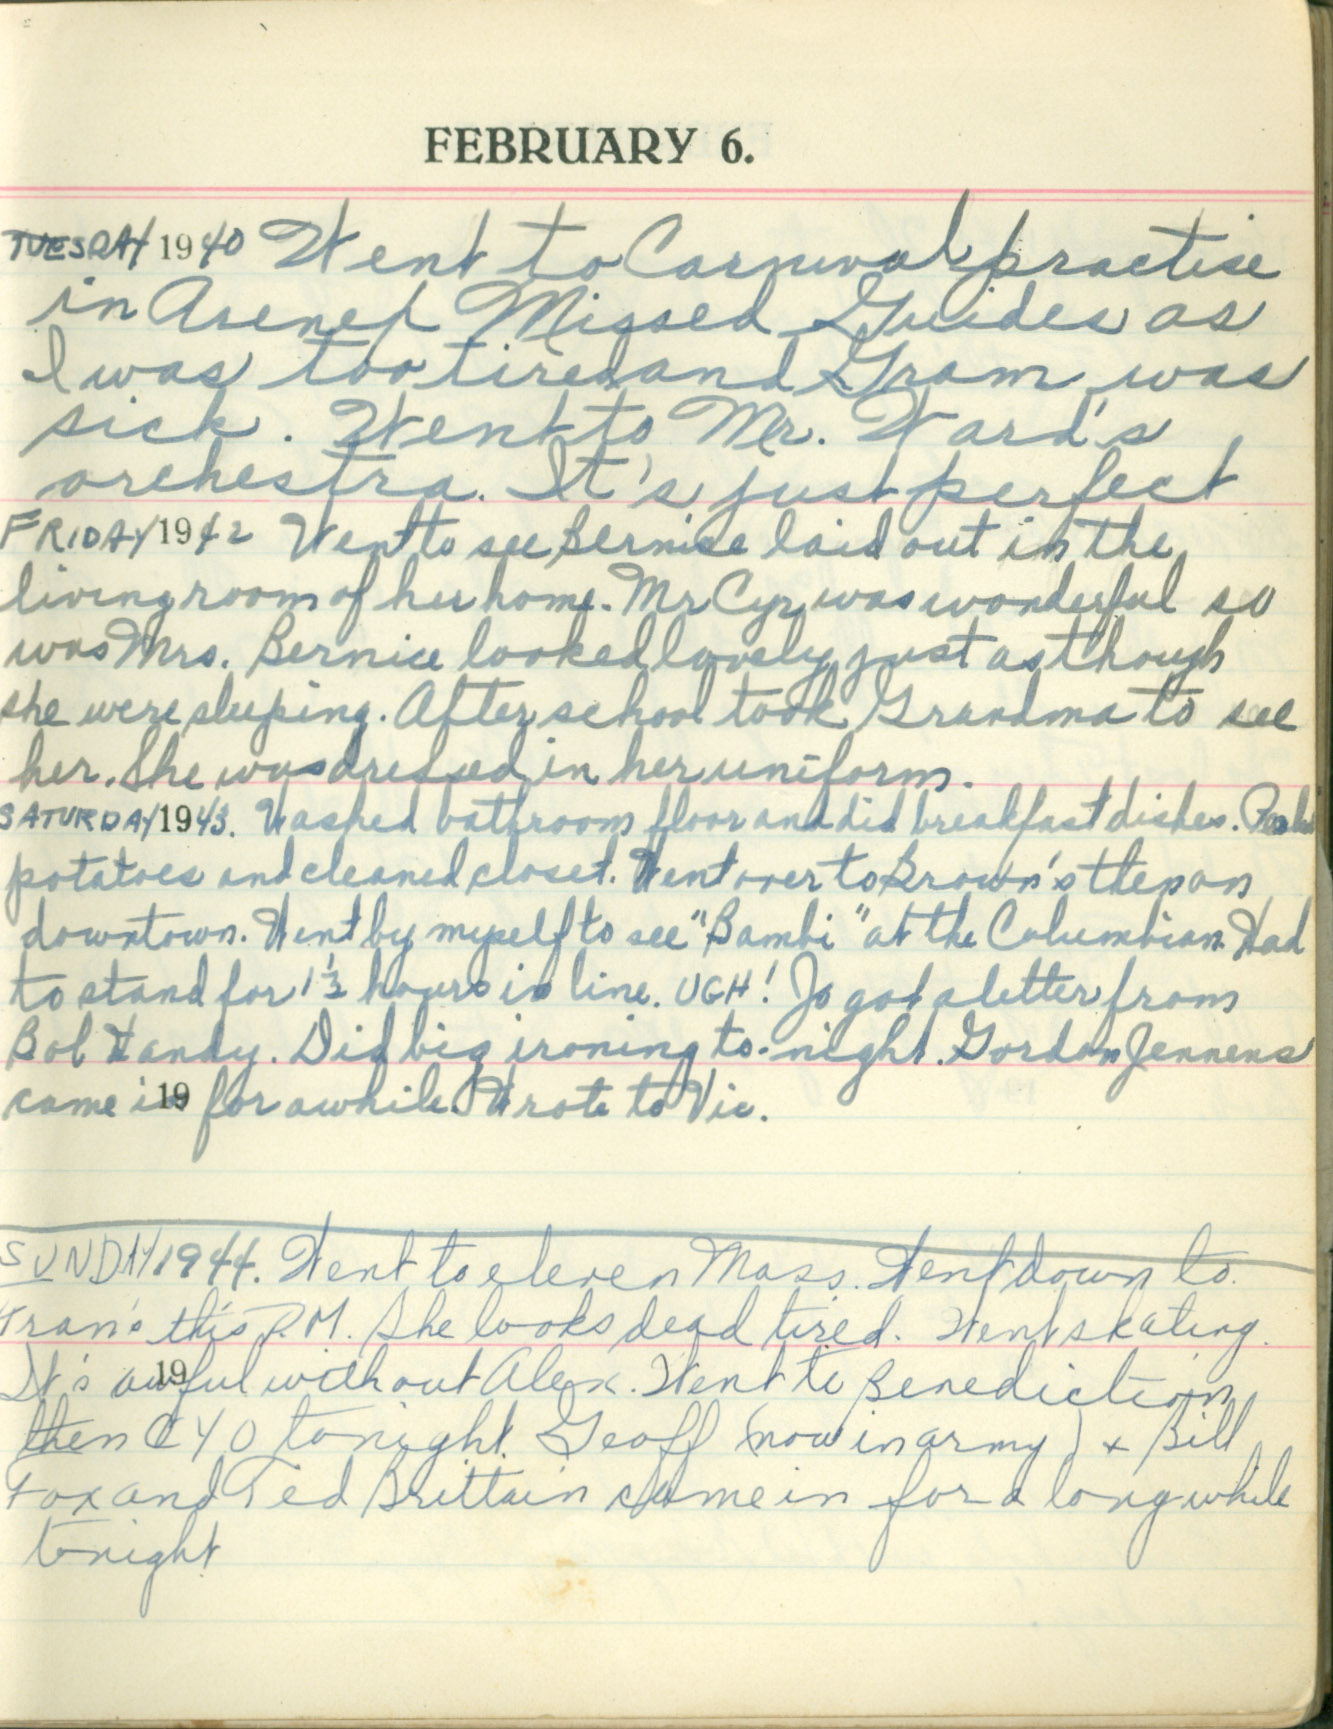 FEBRUARY 6.
TUESDAY 1940 Went to Carnival practise
in Arena. Missed Guides as
I was too tired and Gram was
sick. Went to Mr. Ward's
orchestra. It's just perfect
FRIDAY 1942 Went to see Bernice laid out in the
living room of her home. Mr Cyr was wonderful so
was Mrs. Bernice looked lovely just as though
she were sleeping. After school took Grandma to see
her. She was dressed in her uniform.
SATURDAY 1943. Washed bathroom floor and did breakfast dishes.
potatoes and cleaned closet. Went over to Brown's then on
downtown. Went by myself to see "Bambi" at the Columbian. Had
to stand for 1½ hours in line. UGH! Jo got a letter from
Bob Handy. Did big ironing to-night. Gordon Jennens
came in 19 for awhile. Wrote to Vic.
SUNDAY 1944. Went to eleven Mass. Went down to
Fran's this P.M. She looks dead tired. Went skating.
It's 19 awful without Alex. Went to Benediction
then CYO tonight. Geoff (now in army) + Bill
Fox and Ted Brittain came in for a long while
tonight